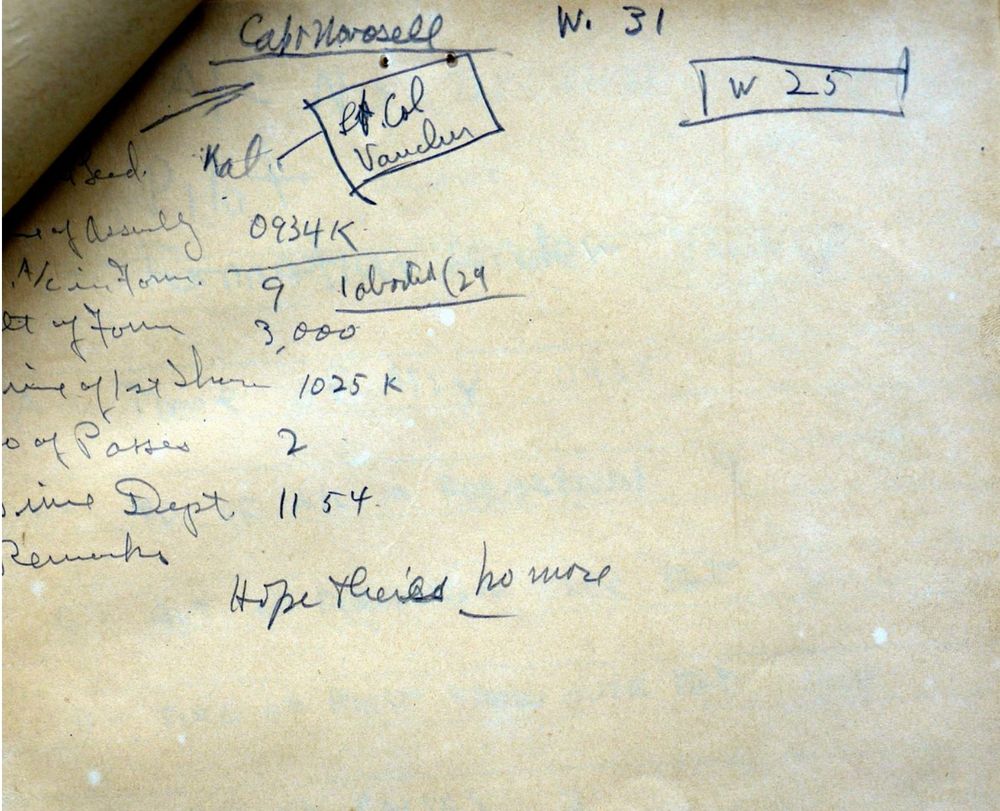 Capt Novosell W. 31
W 25
Lt. Col
Vaucher
Lead. Kat.
me of Assembly 0934K
A/c in Form. 9 1 aborted (29
lt of Form 3,000
ime of 1st Show 1025 K
o of Passes 2
ime Dept. 1154
Remarks
Hope theres no more